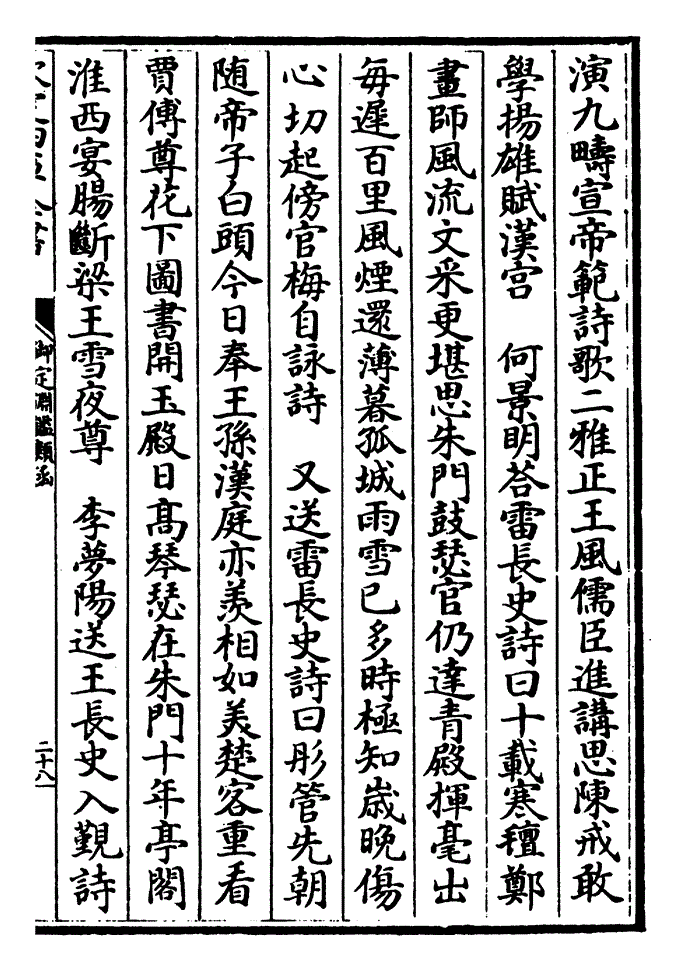 演九疇宣帝範詩歌二雅正王風儒臣進講思陳戒敢
學揚雄賦漢宫　何景明荅雷長史詩曰十載寒氊鄭
畫師風流文采更堪思朱門鼓瑟官仍達青殿揮毫出
每遲百里風煙還薄暮孤城雨雪已多時極知歳晚傷
心切起傍官梅自詠詩　又送雷長史詩曰彤管先朝
随帝子白頭今日奉王孫漢庭亦羨相如美楚客重看
賈傅尊花下圖書開玉殿日髙琴瑟在朱門十年亭閣
淮西宴腸斷梁王雪夜尊　李夢陽送王長史入覲詩
御定淵鑑類函
二十八